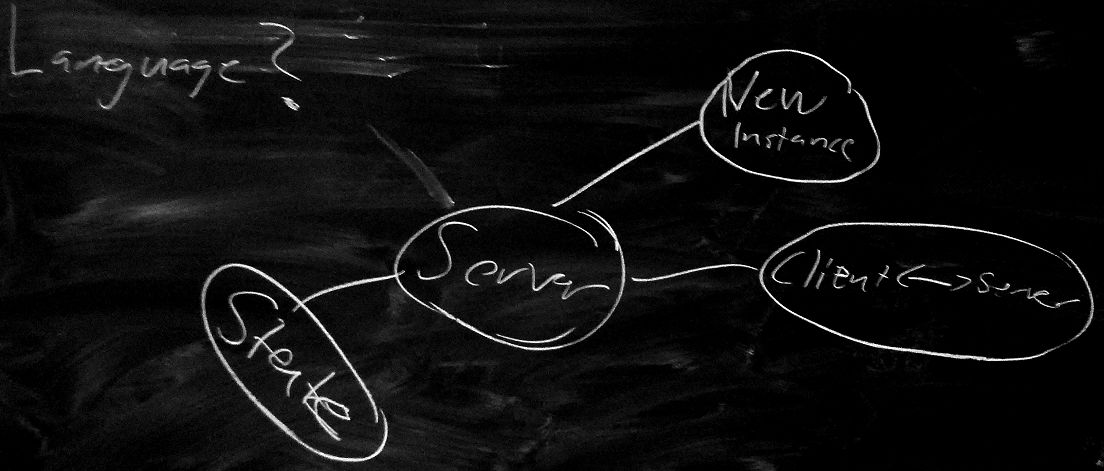 Language?
New
Instance
Server
Client <-> Server